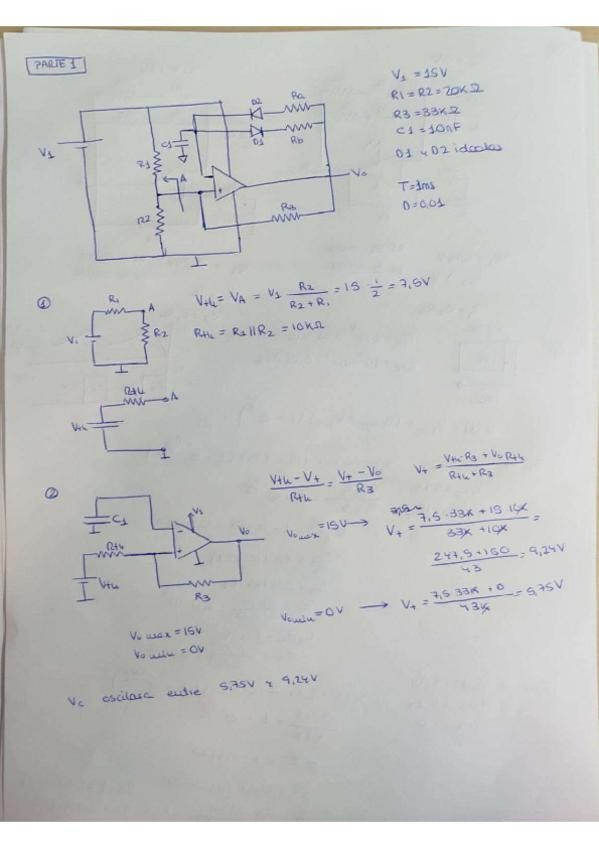 PARTE 1
V1 = 15V
R1 = R2 = 20KΩ
R3 = 33KΩ
C1 = 10nF
D1 y D2 ideales
T = 1ms
D = 0,01
D2 Ra
D1 Rb
C1
V1
R1
A
R2
Vo
R3
①
R1 A
V1 R2
Vth = VA = V1 R2 / (R2 + R1) = 15 · 1/2 = 7,5V
Rth = R1 || R2 = 10KΩ
Rth A
Vth
②
C1
V1
Vo
Rth
Vth
R3
(Vth - V+) / Rth = (V+ - Vo) / R3
V+ = (Vth·R3 + Vo Rth) / (Rth + R3)
Vo max = 15V → V+ = (7,5 · 33K + 15 · 10K) / (33K + 10K) =
(247,5 + 150) / 43 = 9,24V
Vo min = 0V → V+ = (7,5 · 33K + 0) / 43K = 5,75V
Vo max = 15V
Vo min = 0V
Vc oscilará entre 5,75V y 9,24V